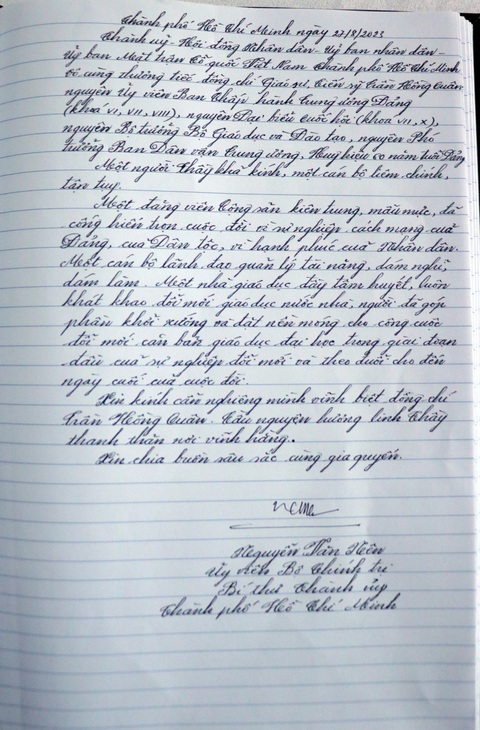 Thành phố Hồ Chí Minh ngày 22/8/2023
Thành uỷ - Hội đồng Nhân dân - Uỷ ban nhân dân -
Uỷ ban Mặt trận Tổ quốc Việt Nam Thành phố Hồ Chí Minh
vô cùng thương tiếc đồng chí Giáo sư, Tiến sỹ Trần Hồng Quân
nguyên Uỷ viên Ban Chấp hành Trung ương Đảng
(khoá VI, VII, VIII), nguyên Đại biểu Quốc hội (khoá VII, X),
nguyên Bộ trưởng Bộ Giáo dục và Đào tạo, nguyên Phó
Trưởng Ban Dân vận Trung ương, Huy hiệu 60 năm tuổi Đảng
Một người Thầy khả kính, một cán bộ liêm chính,
tận tuỵ.
Một đảng viên Cộng sản kiên trung, mẫu mực, đã
cống hiến trọn cuộc đời vì sự nghiệp cách mạng của
Đảng, của Dân tộc, vì hạnh phúc của Nhân dân.
Một cán bộ lãnh đạo quản lý tài năng, dám nghĩ,
dám làm. Một nhà giáo dục đầy tâm huyết, luôn
khát khao đổi mới giáo dục nước nhà; người đã góp
phần khởi xướng và đặt nền móng cho công cuộc
đổi mới căn bản giáo dục đại học trong giai đoạn
đầu của sự nghiệp đổi mới và theo đuổi cho đến
ngày cuối của cuộc đời.
Xin kính cẩn nghiêng mình vĩnh biệt đồng chí
Trần Hồng Quân. Cầu nguyện hương linh Thầy
thanh thản nơi vĩnh hằng.
Xin chia buồn sâu sắc cùng gia quyến.
Nguyễn Văn Nên
Uỷ viên Bộ Chính trị
Bí thư Thành uỷ
Thành phố Hồ Chí Minh